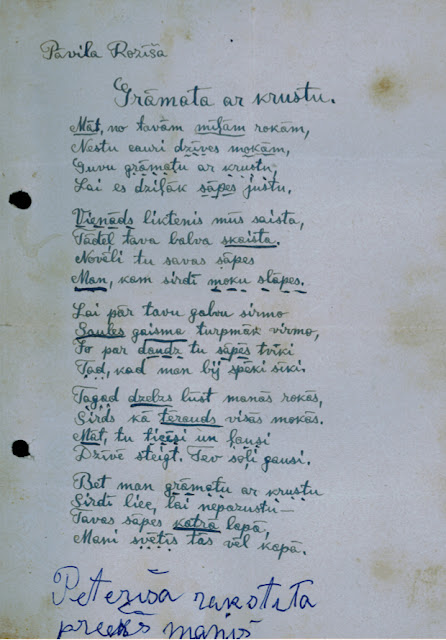 Pāvila Rozīša
Grāmata ar krustu.
Māt, no tavām mīļām rokām,
Nestu cauri dzīves mokām,
Guvu grāmatu ar krustu,
Lai es dziļāk sāpes justu.
Vienāds liktenis mūs saista,
Tādēļ tava balva skaista.
Novēli tu savas sāpes
Man, kam sirdī moku slāpes.
Lai pār tavu galvu sirmo
Saules gaisma turpmāk virmo,
Jo par daudz tu sāpēs tvīki
Tad, kad man bij spēki sīki.
Tagad dzelzs lūst manās rokās,
Sirds kā tērauds visās mokās.
Māt, tu ticēsi un ļausi
Dzīvē steigt. Tev soļi gausi.
Bet man grāmatu ar krustu
Sirdī liec, lai nepazustu—
Tavas sāpes katrā lapā,
Mani svētīs tās vēl kapā.
rakstita
preekš